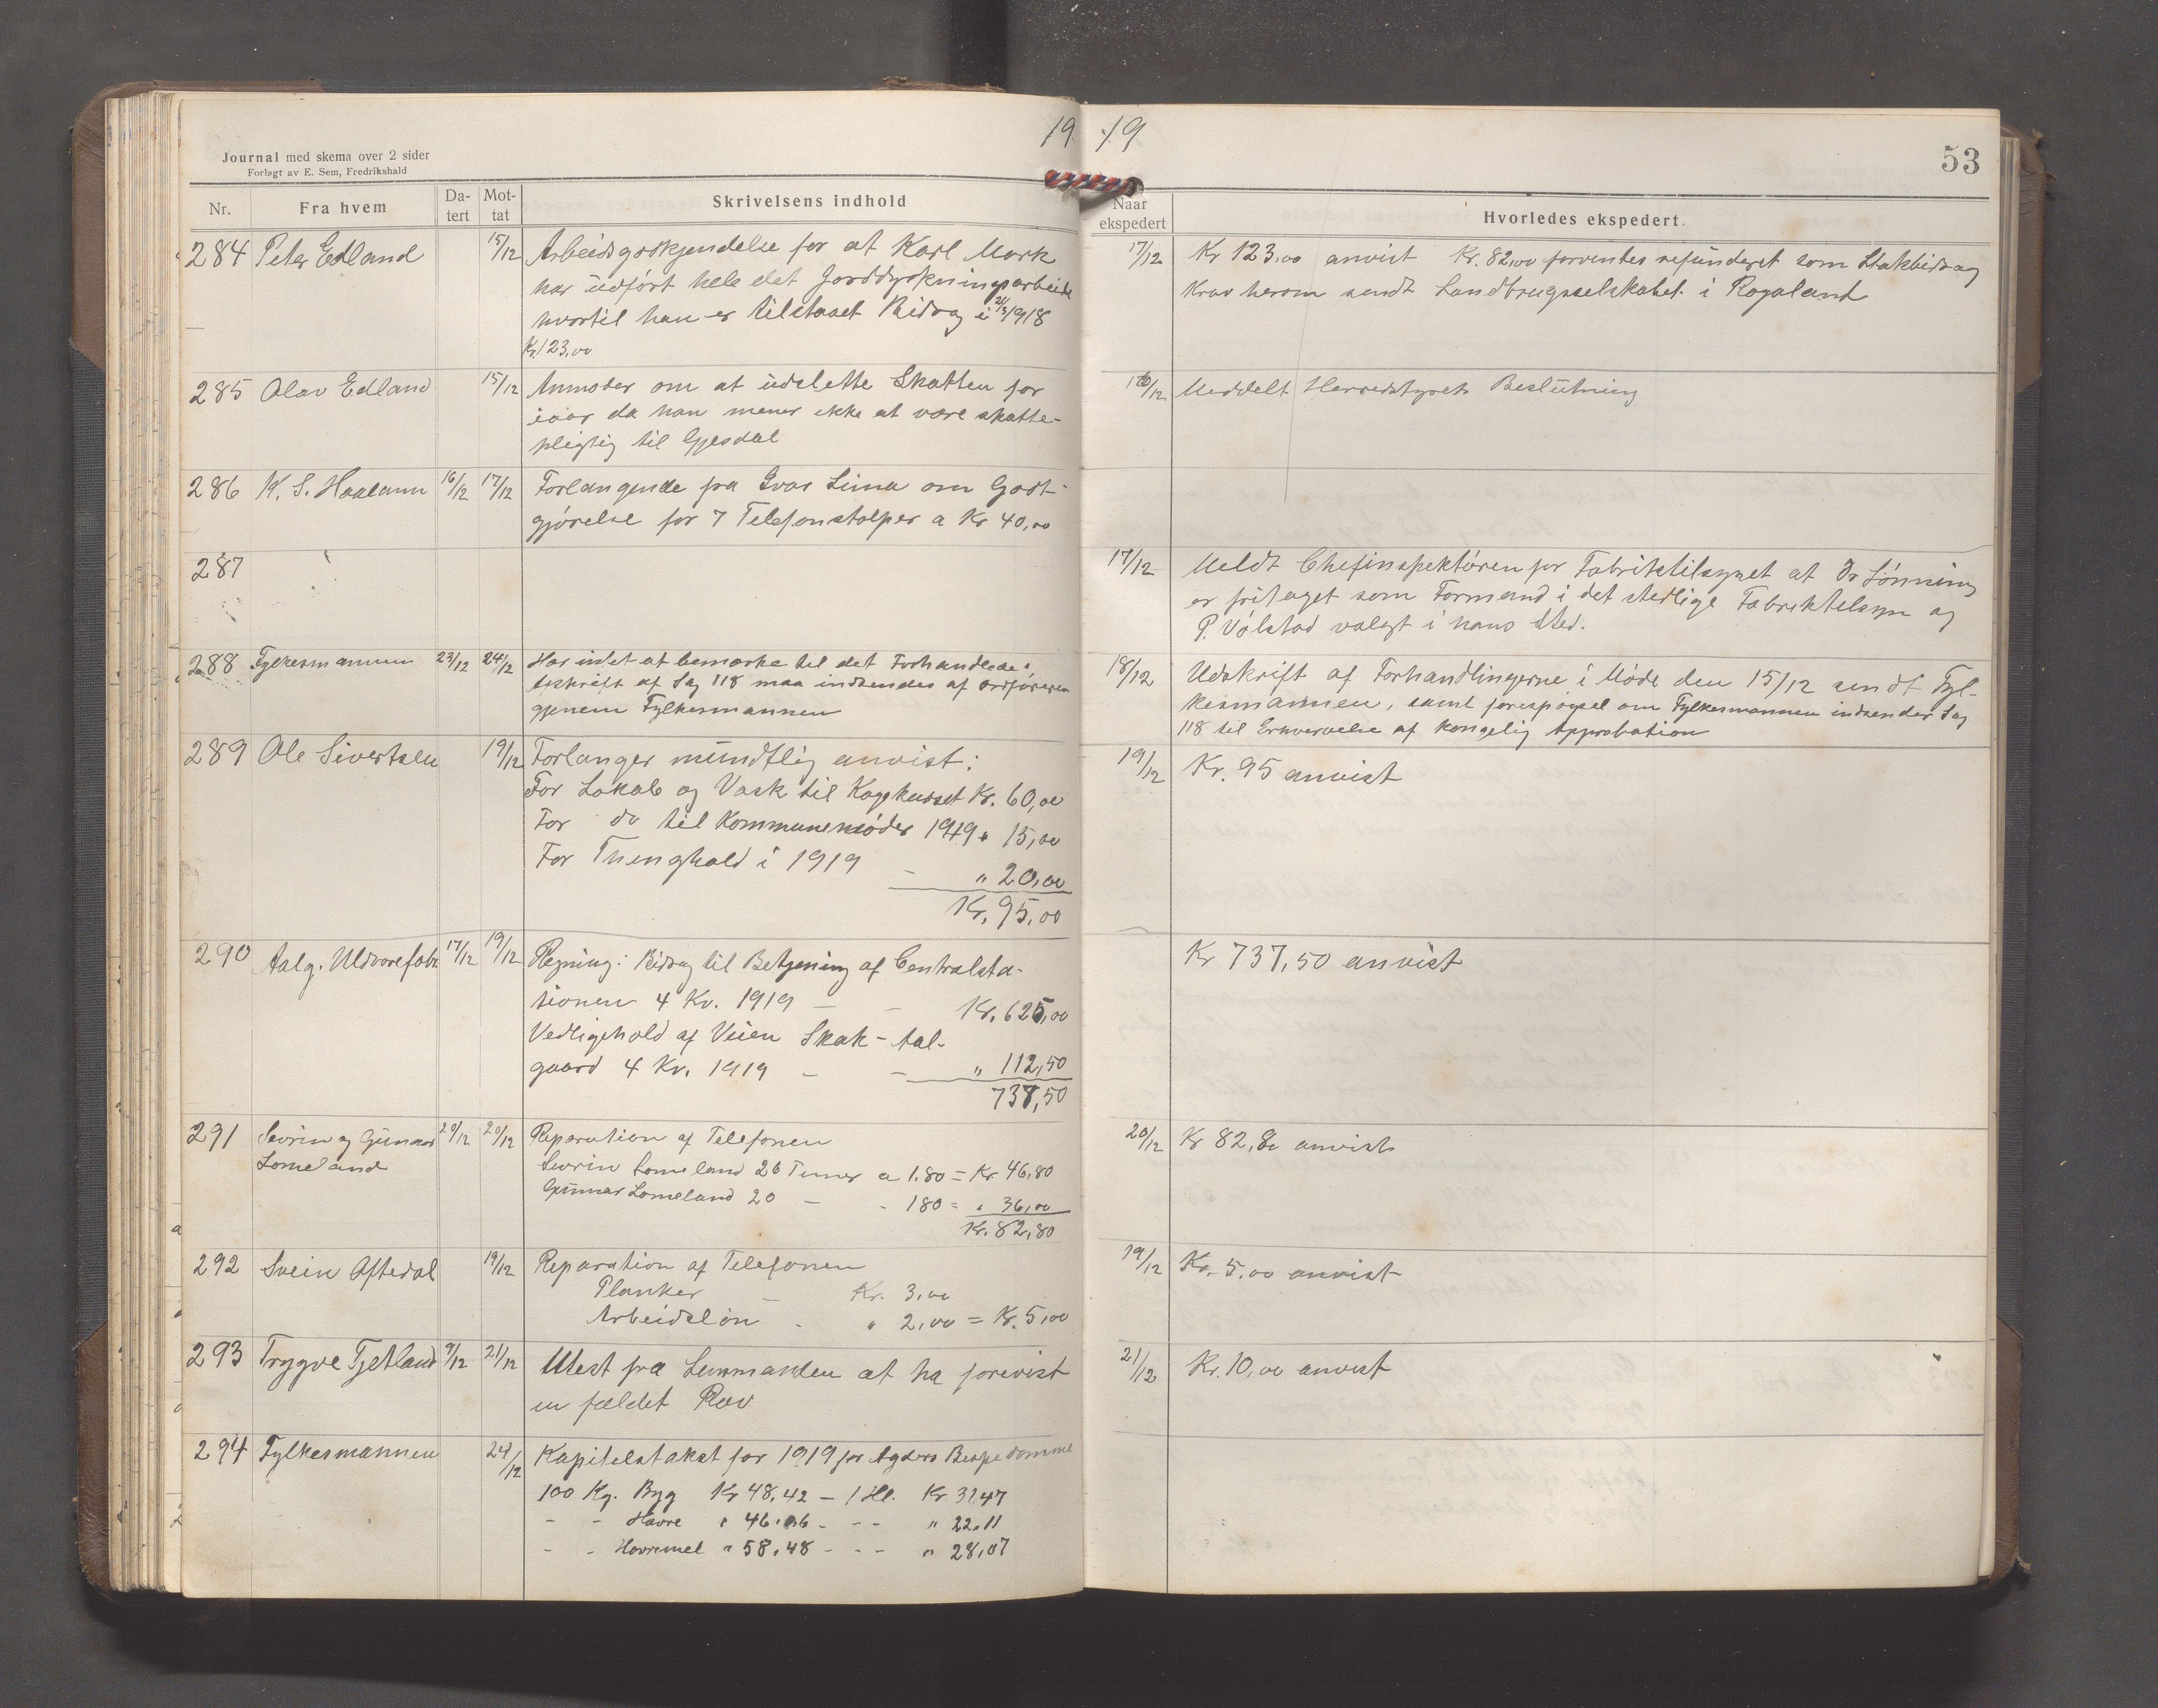 19
19
53
Journal med skema over 2 sider
Forlagt av E. Sem, Fredrikshald
Nr.
Fra hvem
Da-
tert
Mot-
tat
Skrivelsens indhold
Naar
ekspedert
Hvorledes ekspedert.
284 Peter Edland 15/12 Arbeidsgodkjendelse for at Karl Mork
har udført hele det Jorddyrkningsarbeide
hvortil han er tilstaaet Bidrag i 21/3 1918
Kr. 123,00
17/12 Kr 123,00 anvist Kr. 82,00 forventes refunderet som Statsbidrag
Krav herom sendt Landbrugsselskabet i Rogaland
285 Olav Edland 15/12 Anmoder om at udslette Skatten for
iaar da han mener ikke at være skatte-
pligtig til Gjesdal
/12 Meddelt Herredstyrets Beslutning
286 K. S. Haaland 16/12 17/12 Forlangende fra Ivar Lima om Godt-
gjørelse for 7 Telefonstolper a Kr 40,00
287
17/12 Meldt Chefinspektøren for Fabriktilsynet at Dr Lönning
er fritaget som Formand i det stedlige Fabriktilsyn og
P. Vølstad valgt i hans Sted.
288 Fylkesmannen 23/12 24/12 Har intet at bemærke til det Forhandlede.
Afskrift af Sag 118 maa indsendes af ordføreren
gjenem Fylkesmannen
18/12 Udskrift af Forhandlingerne i Møde den 15/12 sendt Fyl-
kesmannen, samt forespørgsel om Fylkesmannen indsender Sag
118 til Erhvervelse af kongelig Approbation
289 Ole Sivertsen 19/12 Forlanger mundtlig anvist:
For Lokale og Vask til Kogekurset Kr. 60,00
For do til Kommunemøder 1919 " 15,00
For Thinghold i 1919 - " 20,00
Kr. 95,00
19/12 Kr. 95 anvist
290 Aalg. Uldvarefabr 17/12 19/12 Regning: Bidrag til Betjening af Centralsta-
tionen 4 Kv. 1919 - - Kr. 625,00
Vedligehold af Veien Skak - Aal-
gaard 4 Kv. 1919 - - " 112,50
737,50
Kr 737,50 anvist
291 Sevrin og Gunnar 20/12 20/12 Reparation af Telefonen
Lomeland
Sevrin Lomeland 26 Timer a 1.80 = Kr. 46,80
Gunnar Lomeland 20 - - 180 = " 36,00
Kr. 82,80
20/12 Kr 82,80 anvist
292 Svein Oftedal 19/12 Reparation af Telefonen
Planker - Kr. 3,00
Arbeidsløn - " 2,00 = Kr. 5,00
19/12 Kr. 5,00 anvist
293 Trygve Tjetland 9/12 21/12 Attest fra Lensmanden at ha forevist
en fældet Ræv
21/12 Kr. 10,00 anvist
294 Fylkesmannen 24/12 Kapitelstakst for 1919 for Agders Bispedømme
100 Kg. Byg Kr 48,42 - 1 Hl. Kr 31,47
- - Havre " 46.06 - - - " 22.11
- - Havremel " 58.48 - - - " 28,07